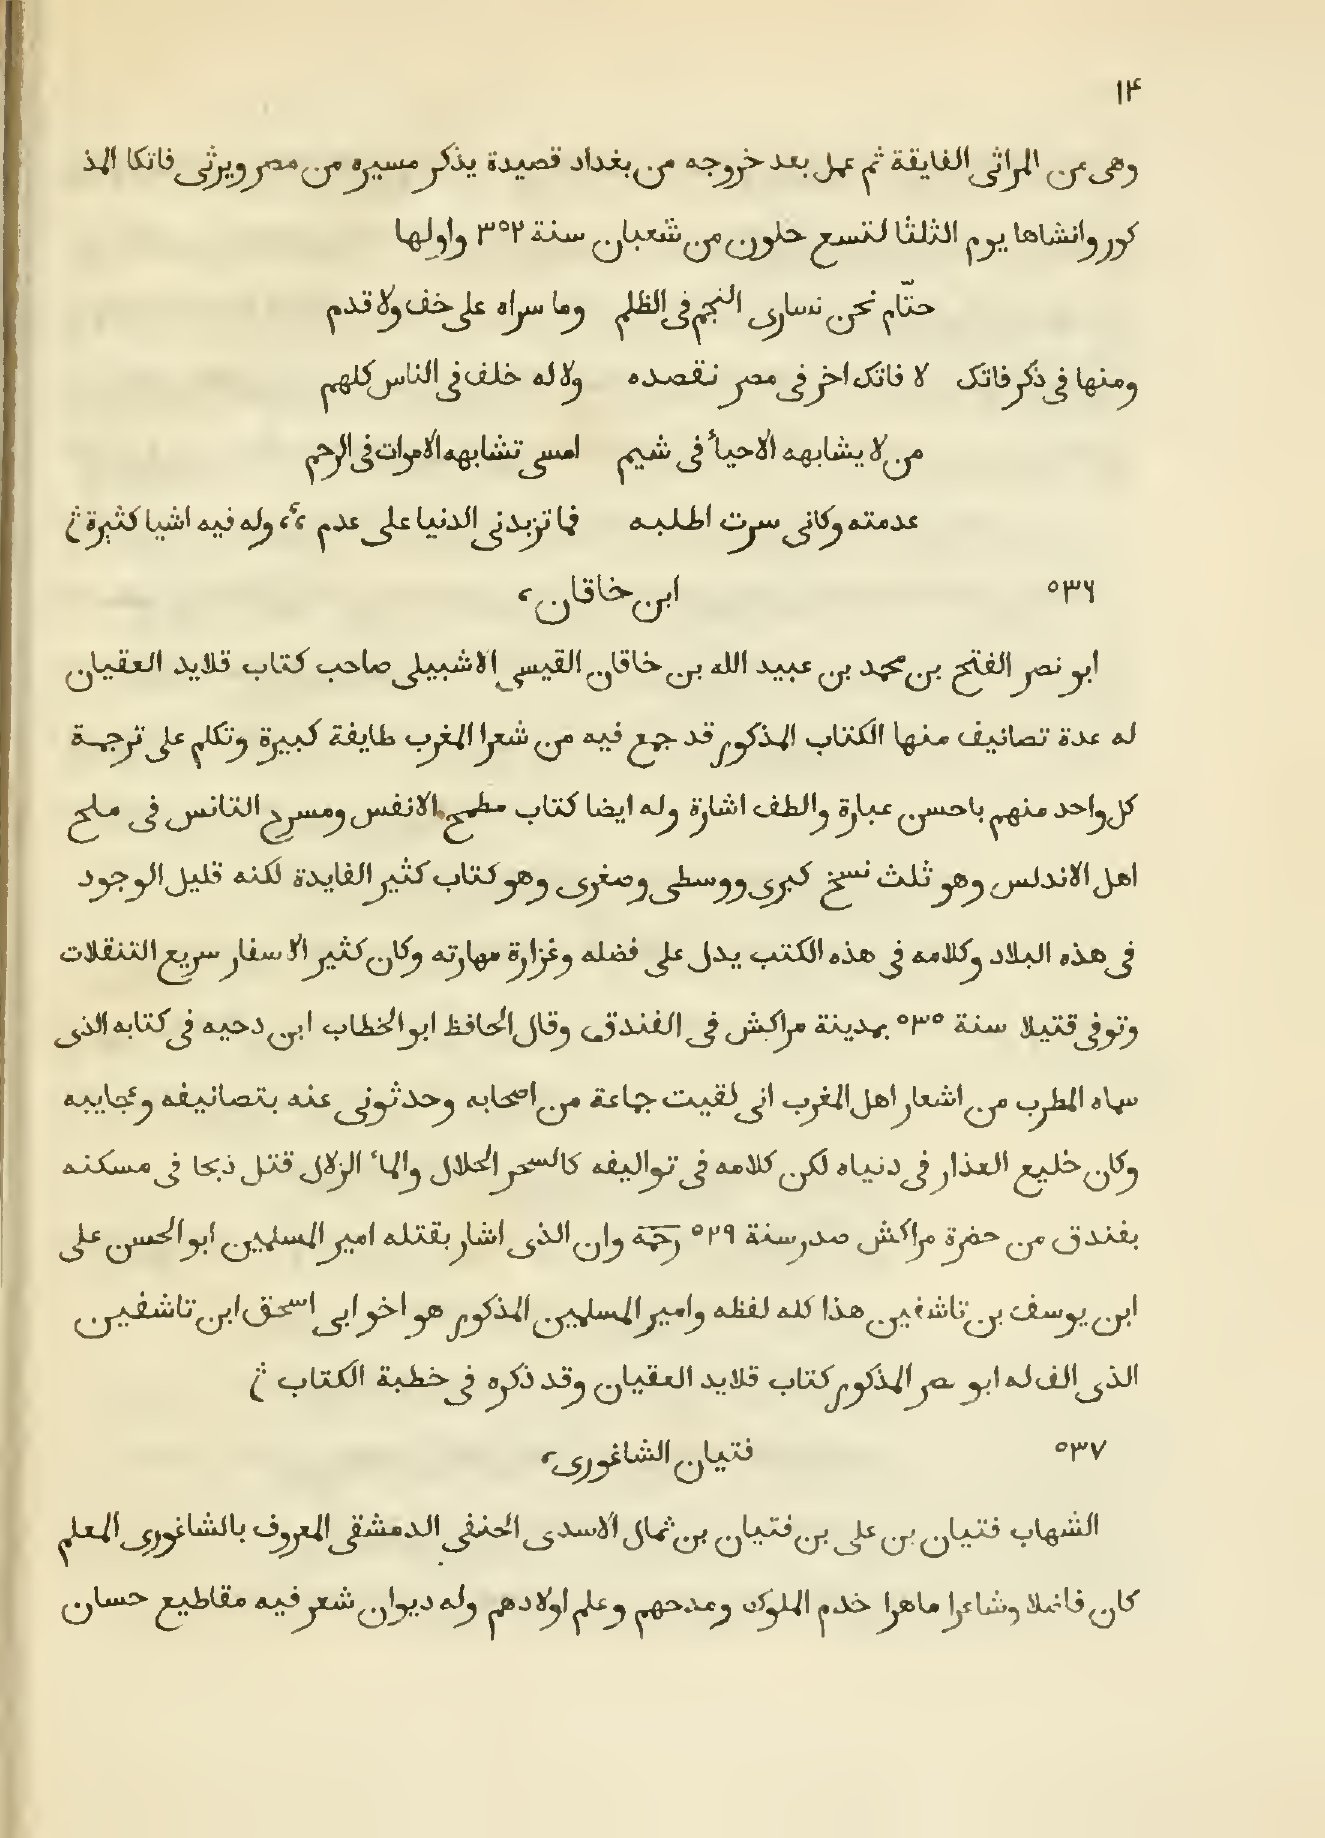 ١۴
وهى من المراثى الفايقة ثم عمل بعد خروجه من بغداد قصيدة يذكر مسيره من مصر ويرثى فاتكا المذ
كور وانشاها يوم الثلثا لتسع خلون من شعبان سنة ٣٥٢ واولها
حتّام نحن نسارى النجم فى الظلم وما سراه على خف ولا قدم
ومنها فى ذكر فاتك لا فاتك اخر فى مصر نقصده ولا له خلف فى الناس كلهم
من لا يشابهه الاحيأ فى شيم امسى تشابهه الاموات فى الرحم
عدمته وكانى سرت اطلبه فما تزيدنى الدنيا على عدم وله فيه اشيا كثيرة
٥٣٦ ابن خاقان،
ابو نصر الفتح بن محمد بن عبيد الله بن خاقان القيسى الاشبيلى صاحب كتاب قلايد العقيان
له عدة تصانيف منها الكتاب المذكور قد جمع فيه من شعرا المغرب طايفة كبيرة وتكلم على ترجمة
كل واحد منهم باحسن عبارة والطف اشارة وله ايضا كتاب مطمح الانفس ومسرح التانس فى ملح
اهل الاندلس وهو ثلث نسخ كبرى ووسطى وصغرى وهو كتاب كثير الفايدة لكنه قليل الوجود
فى هذه البلاد وكلامه فى هذه الكتب يدل على فضله وغزارة مهارته وكان كثير الاسفار سريع التنقلات
وتوفى قتيلا سنة ٥٣٥ بمدينة مراكش فى الفندق وقال الحافظ ابو الخطاب ابن دحيه فى كتابه الذى
سماه المطرب من اشعار اهل المغرب انى لقيت جماعة من اصحابه وحدثونى عنه بتصانيفه وعجايبه
وكان خليع العذار فى دنياه لكن كلامه فى تواليفه كالسحر الحلال والمأ الزلال قتل ذبحا فى مسكنه
بفندق من حضرة مراكش صدر سنة ٥٢٩ رحمه وان الذى اشار بقتله امير المسلمين ابو الحسن على
ابن يوسف بن تاشفين هذا كله لفظه وامير المسلمين المذكور هو اخو ابى اسحق ابن تاشفين
الذى الف له ابو نصر المذكور كتاب قلايد العقيان وقد ذكره فى خطبة الكتاب
٥٣٧ فتيان الشاغورى،
الشهاب فتيان بن على بن فتيان بن ثمال الاسدى الحنفى الدمشقى المعروف بالشاغورى المعلم
كان فاضلا وشاعرا ماهرا خدم الملوك ومدحهم وعلم اولادهم وله ديوان شعر فيه مقاطيع حسان